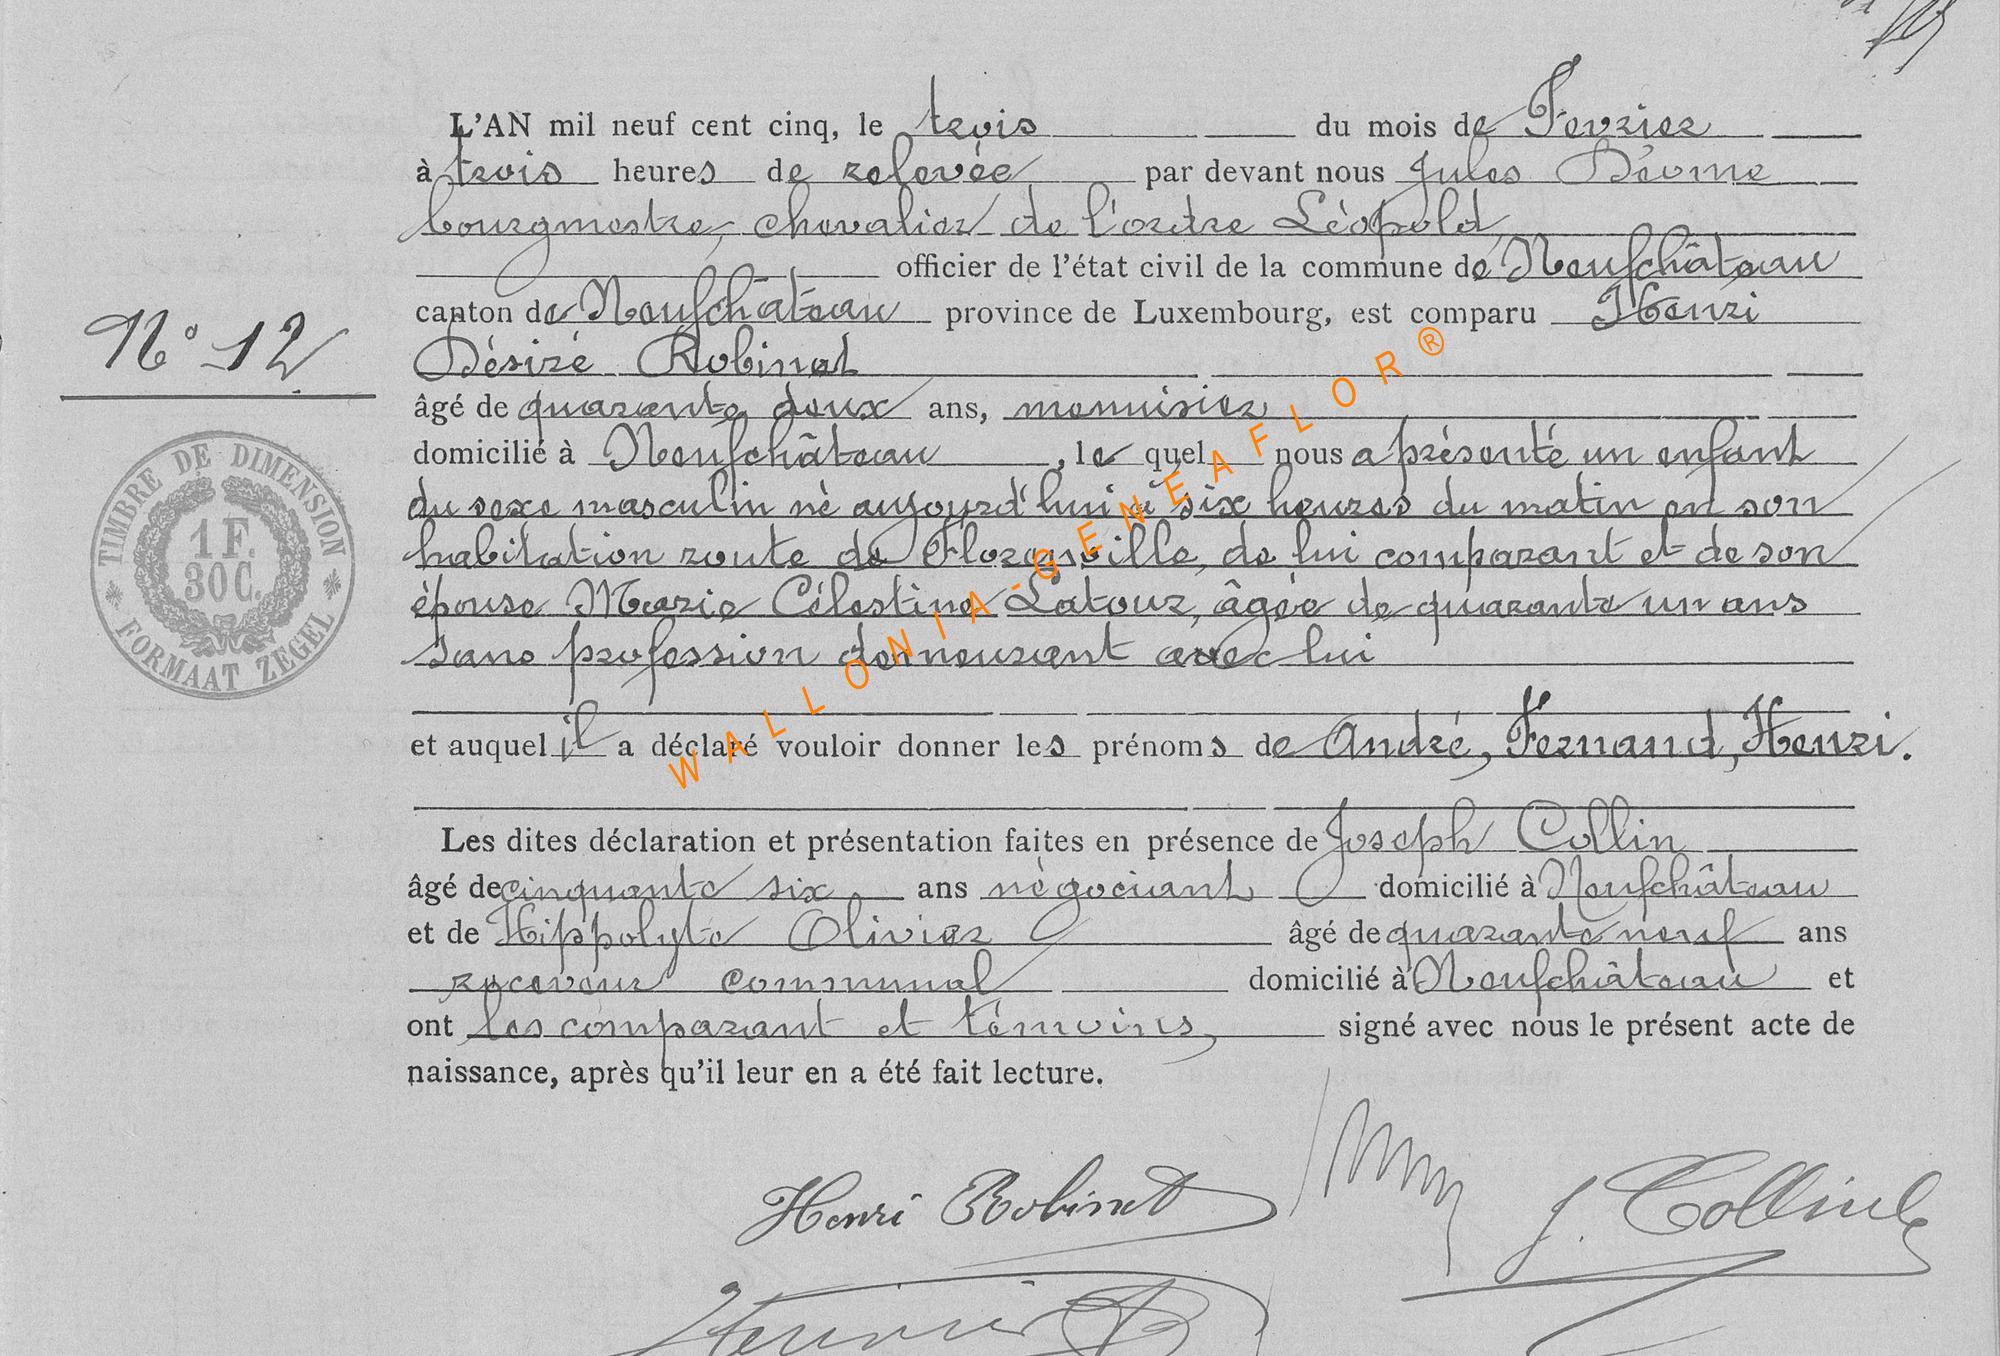 L'AN mil neuf cent cinq, le trois du mois de Fevrier
à trois heures de relevée par devant nous Jules
bourgmestre, chevalier de l'ordre Léopold,
officier de l'état civil de la commune de Neufchâteau
canton de Neufchâteau province de Luxembourg, est comparu Henri
N° 12
Désiré Robinet
âgé de quarante deux ans, menuisier
domicilié à Neufchâteau, le quel nous a présenté un enfant
du sexe masculin né aujourd'hui à six heures du matin en son
habitation route de Florenville, de lui comparant et de son
épouse Marie Célestine Latour, âgée de quarante un ans
sans profession demeurant avec lui
et auquel il a déclaré vouloir donner les prénoms de André, Fernand, Henri.
Les dites déclaration et présentation faites en présence de Joseph Collin
âgé de cinquante six ans négociant domicilié à Neufchâteau
et de Hippolyte Olivier âgé de quarante neuf ans
receveur communal domicilié à Neufchâteau et
ont les comparant et témoins, signé avec nous le présent acte de
naissance, après qu'il leur en a été fait lecture.
TIMBRE DE DIMENSION
1 F.
30 C.
FORMAAT ZEGEL
WALLONIA-GENEAFLOR®
Henri Robinet
J. Collin